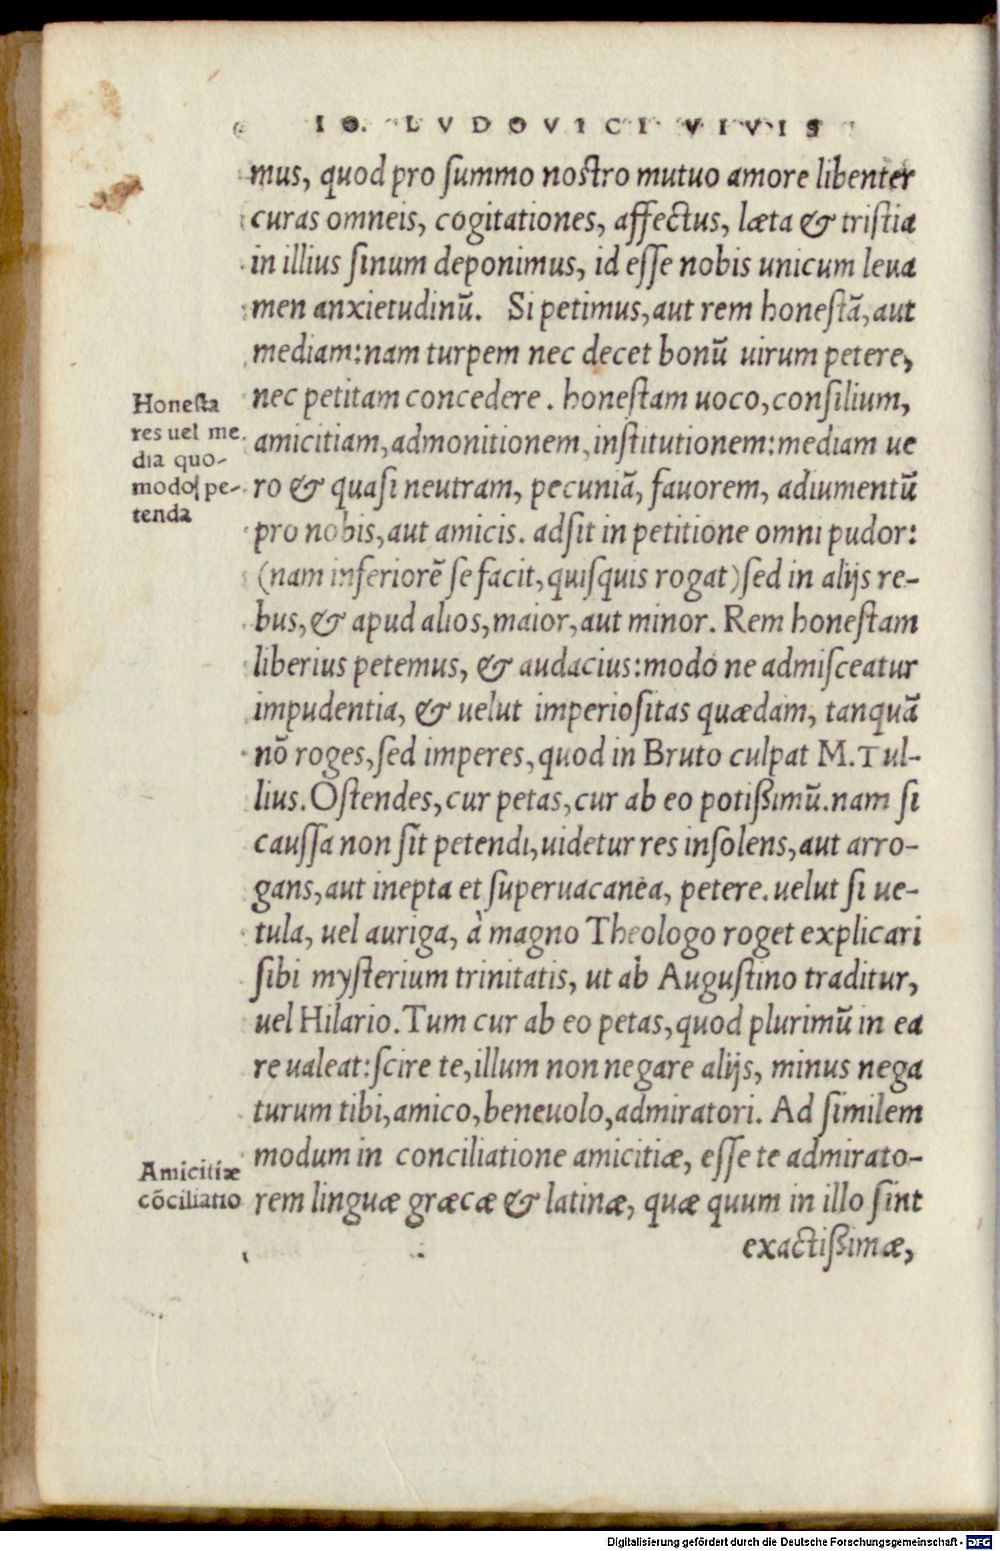 IO. LVDOVICI VIVIS
mus, quod pro ſummo noſtro mutuo amore libenter
curas omneis, cogitationes, affectus, læta & triſtia
in illius ſinum deponimus, id eſſe nobis unicum leua
men anxietudinū. Si petimus, aut rem honeſtā, aut
mediam: nam turpem nec decet bonū uirum petere,
nec petitam concedere. honeſtam uoco, conſilium,
amicitiam, admonitionem, inſtitutionem: mediam ue
ro & quaſi neutram, pecuniā, fauorem, adiumentū
pro nobis, aut amicis. adſit in petitione omni pudor:
(nam inferiorē ſe facit, quiſquis rogat) ſed in alijs re-
bus, & apud alios, maior, aut minor. Rem honeſtam
liberius petemus, & audacius: modo ne admiſceatur
impudentia, & uelut imperioſitas quædam, tanquā
nō roges, ſed imperes, quod in Bruto culpat M. Tul-
lius. Oſtendes, cur petas, cur ab eo potißimū. nam ſi
cauſſa non ſit petendi, uidetur res inſolens, aut arro-
gans, aut inepta et ſuperuacanea, petere. uelut ſi ue-
tula, uel auriga, à magno Theologo roget explicari
ſibi myſterium trinitatis, ut ab Auguſtino traditur,
uel Hilario. Tum cur ab eo petas, quod plurimū in ea
re ualeat: ſcire te, illum non negare alijs, minus nega
turum tibi, amico, beneuolo, admiratori. Ad ſimilem
modum in conciliatione amicitiæ, eſſe te admirato-
rem linguæ græcæ & latinæ, quæ quum in illo ſint
exactißimæ,
Honeſta
res uel me
dia quo-
modo pe-
tenda
Amicitiæ
cōciliatio
Digitalisierung gefördert durch die Deutsche Forschungsgemeinschaft - DFG